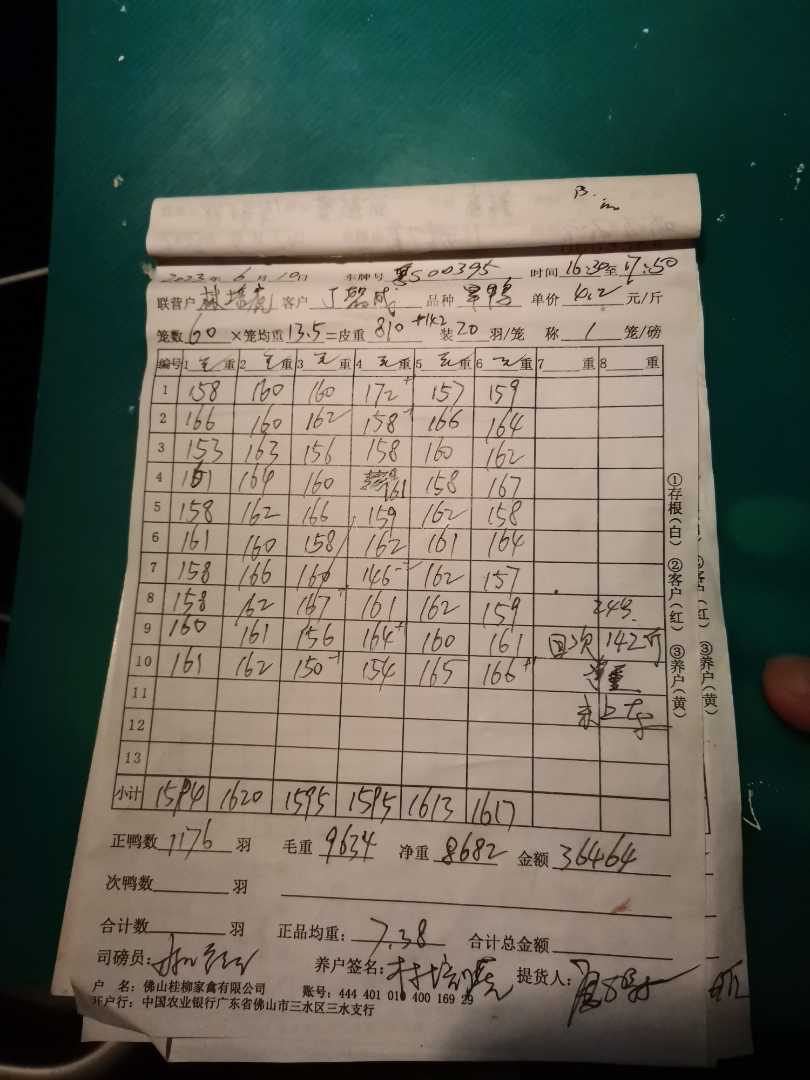 2023年6月10日 车牌号 粤S00395 时间 16:30至17:50
联营户 客户 丁 成 品种 旱鸭 单价 4.2 元/斤
笼数 60 ×笼均重 13.5 =皮重 810 +142 装 20 羽/笼 称 1 笼/磅
编号 1 毛重 2 毛重 3 毛重 4 毛重 5 毛重 6 毛重 7 重 8 重
1 158 160 160 172+ 157 159
2 166 160 162 158- 166 164
3 153 163 156 158 160 162
4 161 164 160 161 158 167
5 158 162 166 159 162 158
6 161 160 158 162 161 164
7 158 166 160 146- 162 157
8 158 162 167 161 162 159
9 160 161 156 164+ 160 161 142斤
10 161 162 150- 154 165 166+
11
12
13
小计 1594 1620 1595 1595 1613 1617
正鸭数 1176 羽 毛重 9634 净重 8682 金额 36464
次鸭数 羽
合计数 羽 正品均重: 7.38 合计总金额
司磅员: 养户签名: 提货人:
户 名: 佛山桂柳家禽有限公司 账号: 444 401 010 400 169 29
开户行: 中国农业银行广东省佛山市三水区三水支行
①存根(白) ②客户(红) ③养户(黄)
③养户(黄)